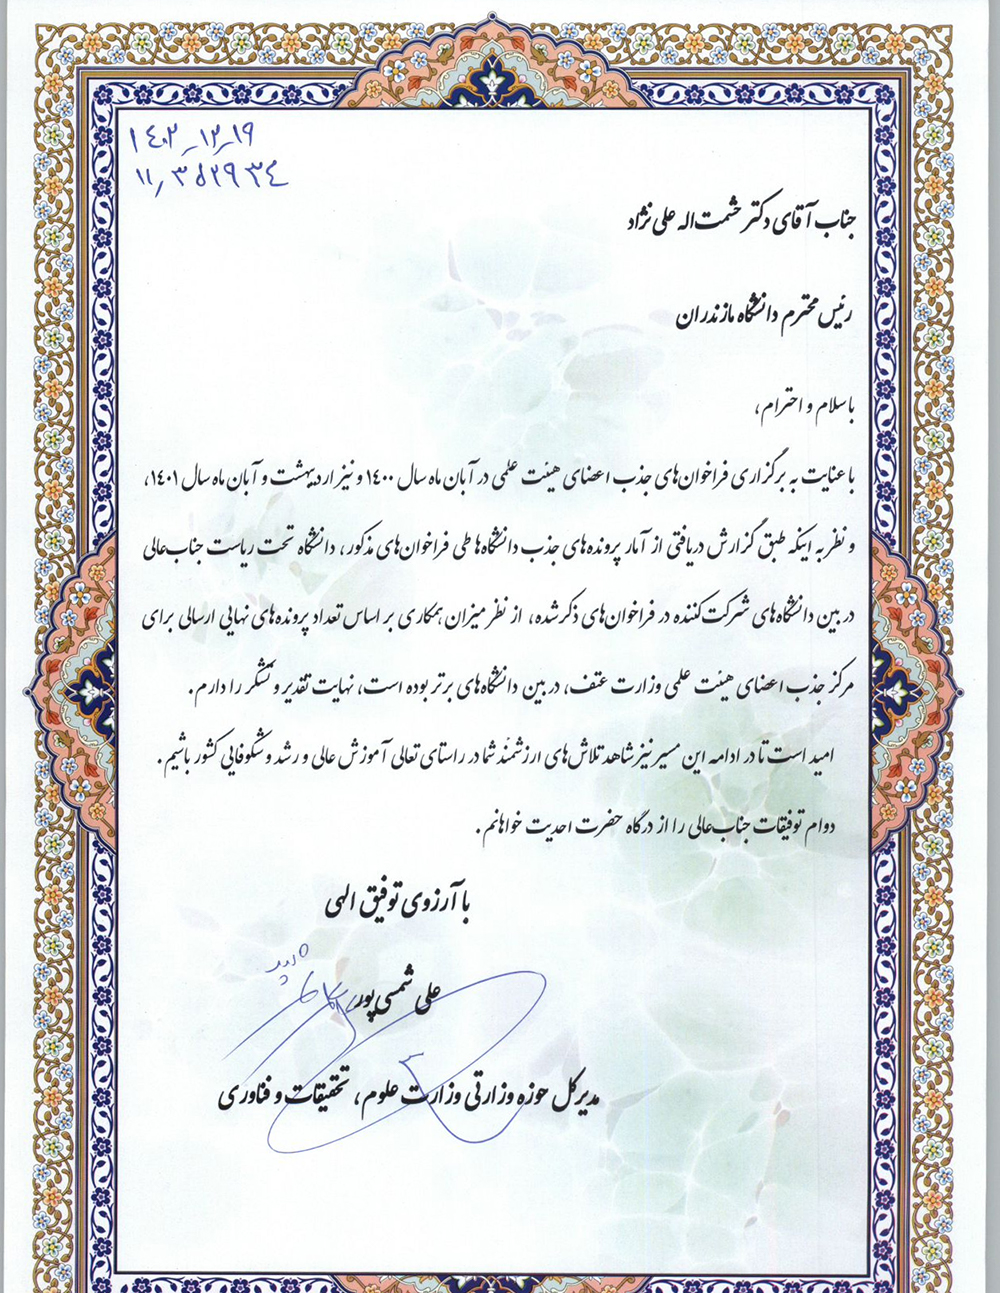 ۱۴۰۲_۱۲_۱۹
۱۱٫۳۵۲۹۳۴
جناب آقای دکتر حشمت‌اله علی‌نژاد
رئیس محترم دانشگاه مازندران
با سلام و احترام،
با عنایت به برگزاری فراخوان‌های جذب اعضای هیئت علمی در آبان ماه سال ۱۴۰۰ و نیز اردیبهشت و آبان ماه سال ۱۴۰۱،
و نظر به اینکه طبق گزارش دریافتی از آمار پرونده‌های جذب دانشگاه‌ها طی فراخوان‌های مذکور، دانشگاه تحت ریاست جناب‌عالی
در بین دانشگاه‌های شرکت‌کننده در فراخوان‌های ذکر شده، از نظر میزان همکاری بر اساس تعداد پرونده‌های نهایی ارسالی برای
مرکز جذب اعضای هیئت علمی وزارت عتف، در بین دانشگاه‌های برتر بوده است، نهایت تقدیر و تشکر را دارم.
امید است تا در ادامه این مسیر نیز شاهد تلاش‌های ارزشمند شما در راستای تعالی آموزش عالی و رشد و شکوفایی کشور باشیم.
دوام توفیقات جناب‌عالی را از درگاه حضرت احدیت خواهانم.
با آرزوی توفیق الهی
علی شمسی‌پور
مدیرکل حوزه وزارتی وزارت علوم، تحقیقات و فناوری